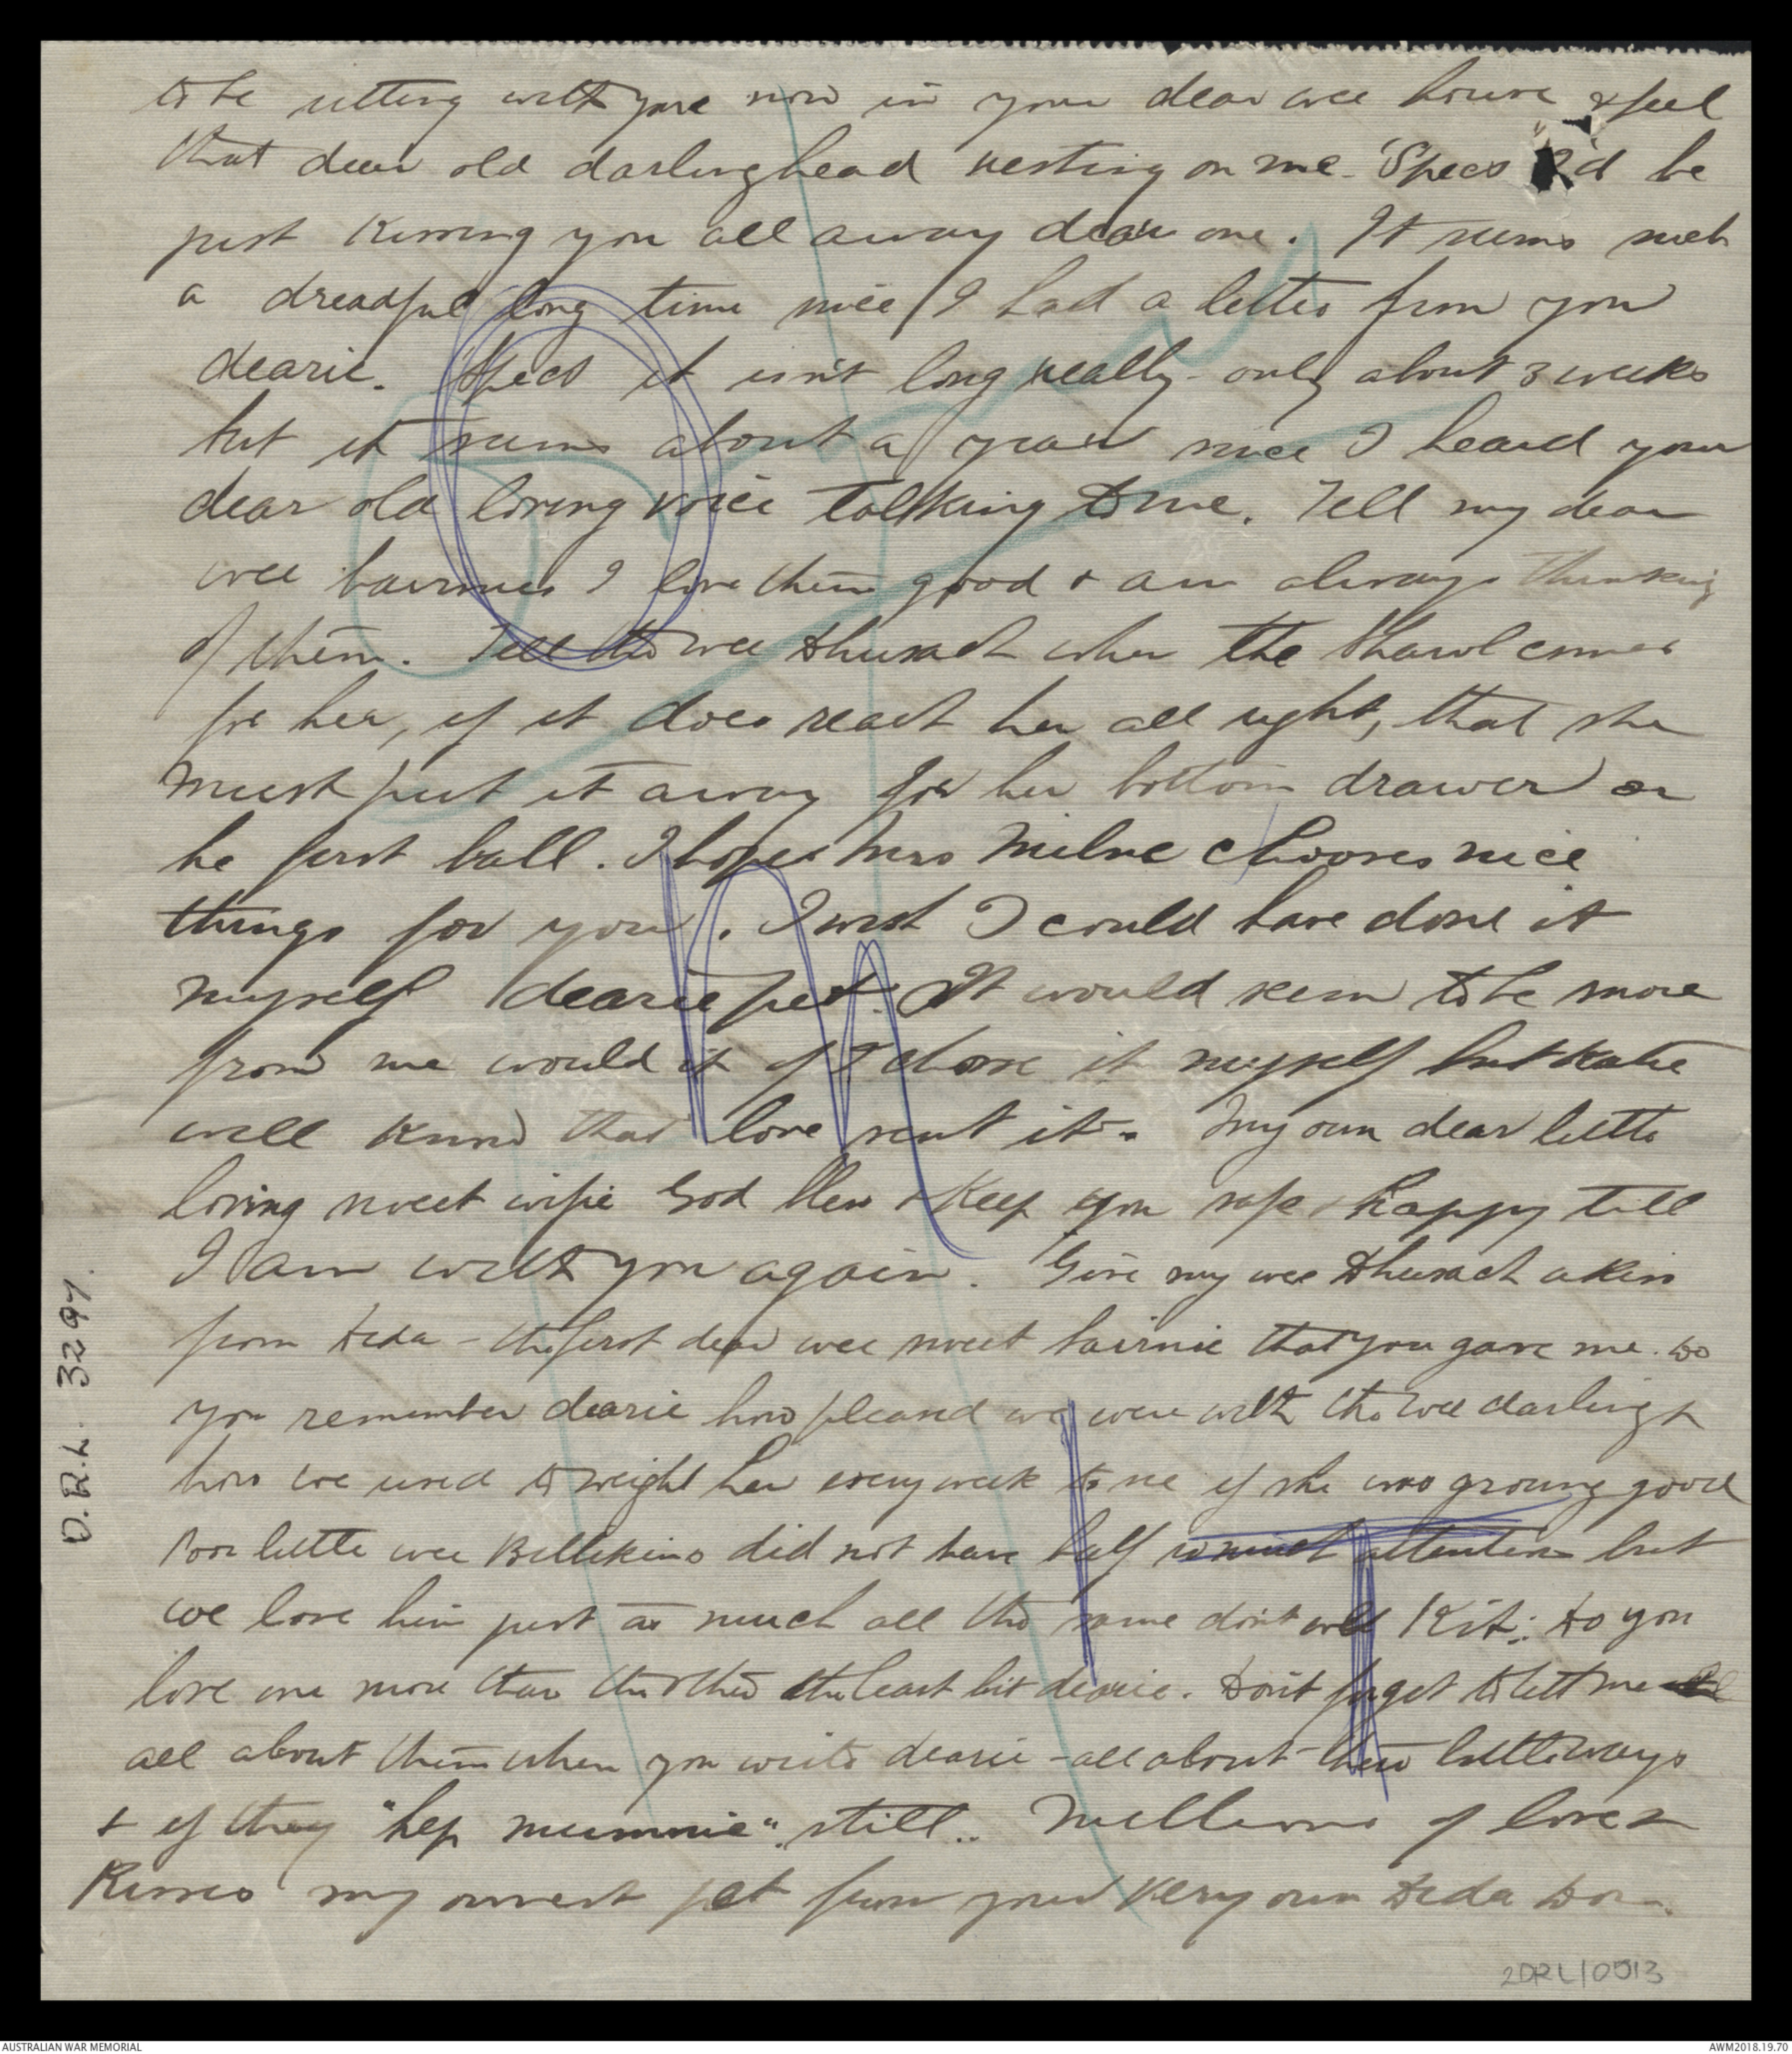 to be sitting with you now in your dear wee house & feel
that dear old darling head resting on me. 'Specs I'd be
just kissing you all away dear one. It seems such
a dreadful long time since I had a letter from you
dearie. 'Specs it isn't long really - only about 3 weeks
but it seems about a year since I heard your
dear old loving voice talking to me. Tell my dear
wee bairnies I love them good & am always thinking
of them. Tell the wee when the shawl comes
for her, if it does reach her all right, that she
must put it away for her bottom drawer or
he first ball. I hope Mrs Milne chooses nice
things for you. I wish I could have done it
myself dearie pet. It would seem to be more
from me would it if I chose it myself but Katie
will know that love sent it. My own dear little
loving sweet wifie God bless & keep you safe & happy till
I am with you again. Give my wee a kiss
from Dada - the first dear wee sweet bairnie that you gave me. Do
you remember dearie how pleased we were with the wee darling &
how we used to weigh her every week to see if she was growing good
Poor little wee Billikins did not have half so much attention but
we love him just as much all the same don't we Kit. Do you
love one more than the other the least bit dearie. Don't forget to tell me
all about them when you write dearie - all about their little ways
& if they "hep mummie" still. Millions of love &
Kisses my ownest pet from your very own Dada
D.R.L. 3297.
2DRL/0513
AUSTRALIAN WAR MEMORIAL
AWM2018.19.70